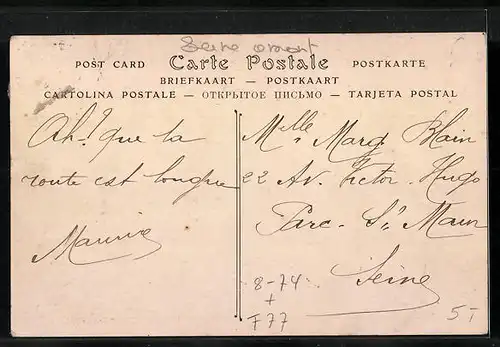 Seine amont
POST CARD Carte Postale POSTKARTE
BRIEFKAART — POSTKAART
CARTOLINA POSTALE — ОТКРЫТОЕ ПИСЬМО — TARJETA POSTAL
Ah! que la
route est longue
Maurice
Mlle Marg. Blain
22 Av. Victor Hugo
Parc St Maur
Seine
8-74
+
F77
5T